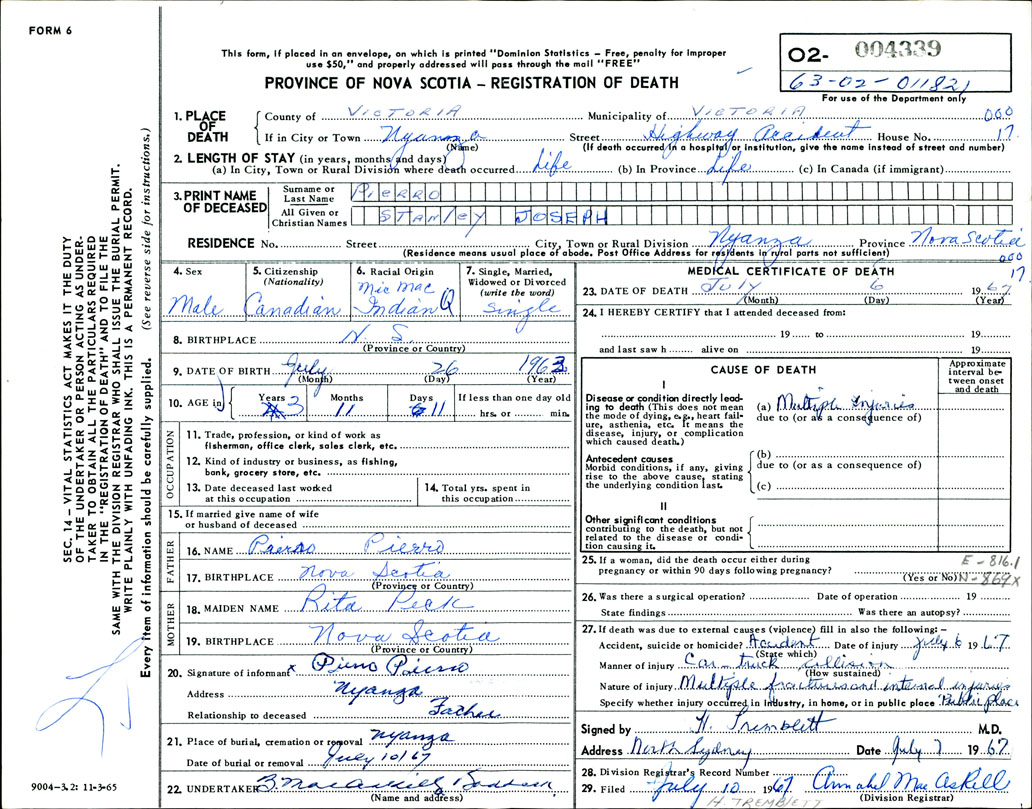 FORM 6
This form, if placed in an envelope, on which is printed "Dominion Statistics – Free, penalty for improper
use $50," and properly addressed will pass through the mail "FREE"
PROVINCE OF NOVA SCOTIA – REGISTRATION OF DEATH
02- 004339
63-02-011821
For use of the Department only
1. PLACE OF DEATH
County of VICTORIA Municipality of VICTORIA 000
If in City or Town Nyanza Street Highway Accident House No. 17
(Name) (If death occurred in a hospital or institution, give the name instead of street and number)
2. LENGTH OF STAY (in years, months and days)
(a) In City, Town or Rural Division where death occurred Life (b) In Province Life (c) In Canada (if immigrant)
3. PRINT NAME OF DECEASED
Surname or Last Name PIERRO
All Given or Christian Names STANLEY JOSEPH
RESIDENCE No. Street City, Town or Rural Division Nyanza Province Nova Scotia
(Residence means usual place of abode. Post Office Address for residents in rural parts not sufficient) 000
17
4. Sex
Male
5. Citizenship (Nationality)
Canadian
6. Racial Origin
Mic Mac
Indian
7. Single, Married, Widowed or Divorced (write the word)
Single
8. BIRTHPLACE N. S.
(Province or Country)
9. DATE OF BIRTH July 26 1963
(Month) (Day) (Year)
10. AGE in Years 3 Months 11 Days 11 If less than one day old hrs. or min.
OCCUPATION
11. Trade, profession, or kind of work as
fisherman, office clerk, sales clerk, etc.
12. Kind of industry or business, as fishing,
bank, grocery store, etc.
13. Date deceased last worked
at this occupation
14. Total yrs. spent in
this occupation
15. If married give name of wife
or husband of deceased
FATHER
16. NAME Pierro Pierro
17. BIRTHPLACE Nova Scotia
(Province or Country)
MOTHER
18. MAIDEN NAME Rita Peck
19. BIRTHPLACE Nova Scotia
(Province or Country)
20. Signature of informant x
Address Nyanza
Relationship to deceased Father
21. Place of burial, cremation or removal Nyanza
Date of burial or removal July 10/67
22. UNDERTAKER
(Name and address)
MEDICAL CERTIFICATE OF DEATH
23. DATE OF DEATH JULY 6 1967
(Month) (Day) (Year)
24. I HEREBY CERTIFY that I attended deceased from:
19 to 19
and last saw h alive on 19
CAUSE OF DEATH
Approximate interval between onset and death
I
Disease or condition directly leading to death (This does not mean the mode of dying, e.g., heart failure, asthenia, etc. It means the disease, injury, or complication which caused death.)
(a) Multiple Injuries
due to (or as a consequence of)
Antecedent causes
Morbid conditions, if any, giving rise to the above cause, stating the underlying condition last.
(b)
due to (or as a consequence of)
(c)
II
Other significant conditions
contributing to the death, but not related to the disease or condition causing it.
25. If a woman, did the death occur either during E-816.1
pregnancy or within 90 days following pregnancy? (Yes or No) N-869x
26. Was there a surgical operation? Date of operation 19
State findings Was there an autopsy?
27. If death was due to external causes (violence) fill in also the following: –
Accident, suicide or homicide? Accident Date of injury July 6 1967
(State which)
Manner of injury Car – truck collision
(How sustained)
Nature of injury Multiple fractures and internal injuries
Specify whether injury occurred in industry, in home, or in public place Public place
Signed by H. Tremblett M.D.
Address North Sydney Date July 7 1967
28. Division Registrar's Record Number
29. Filed July 10 1967 Annabel MacAskill
H. TREMBLETT (Division Registrar)
SEC. 14 – VITAL STATISTICS ACT MAKES IT THE DUTY
OF THE UNDERTAKER OR PERSON ACTING AS UNDER-
TAKER TO OBTAIN ALL THE PARTICULARS REQUIRED
IN THE "REGISTRATION OF DEATH" AND TO FILE THE
SAME WITH THE DIVISION REGISTRAR WHO SHALL ISSUE THE BURIAL PERMIT.
WRITE PLAINLY WITH UNFADING INK. THIS IS A PERMANENT RECORD.
Every item of information should be carefully supplied. (See reverse side for instructions.)
9004–3.2: 11-3-65